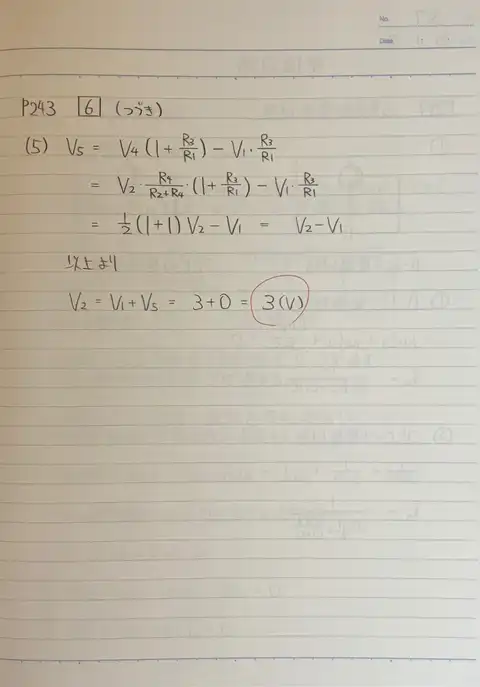 No.
Date
P243 6 (つづき)
(5) V5 = V4(1+R3/R1) - V1·R3/R1
= V2·R4/R2+R4·(1+R3/R1) - V1·R3/R1
= 1/2(1+1)V2 - V1 = V2-V1
以上より
V2 = V1+V5 = 3+0 = 3(V)